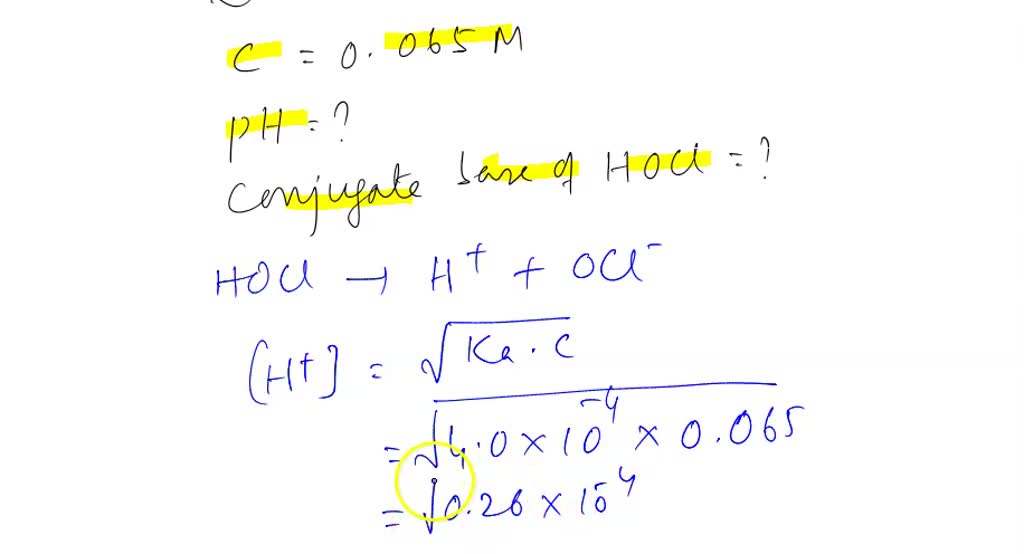 C = 0.065 M
pH = ?
Conjugate base of HOCl = ?
HOCl → H⁺ + OCl⁻
[H⁺] = √Ka · C
= √4.0 × 10⁻⁴ × 0.065
= √0.26 × 10⁻⁴